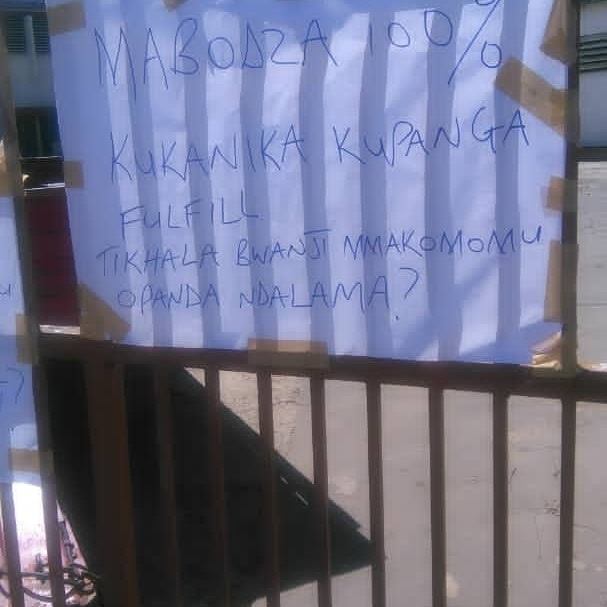 MABODZA 100%
KUKANIKA KUPANGA
FULFILL
TIKHALA BWANJI MMAKOMOMU
OPANDA NDALAMA?